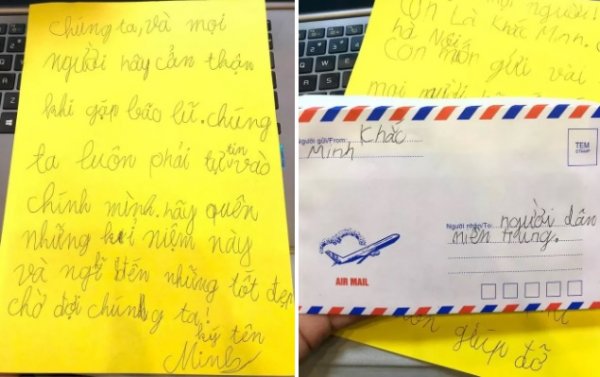 chúng ta, và mọi
người hãy cẩn thận
khi gặp bão lũ. chúng
ta luôn phải tự tin vào
chính mình. hãy quên
những kỉ niệm này
và nghĩ đến những tốt đẹp
chờ đợi chúng ta!
ký tên
Minh
mọi người!
Con Là Khắc Minh.
hà Nội.
Con muốn gửi vài
mọi người
Người gửi/From: Khắc
Minh
TEM
STAMP
Người nhận/To: người dân
miền trung.
AIR MAIL
giúp đỡ